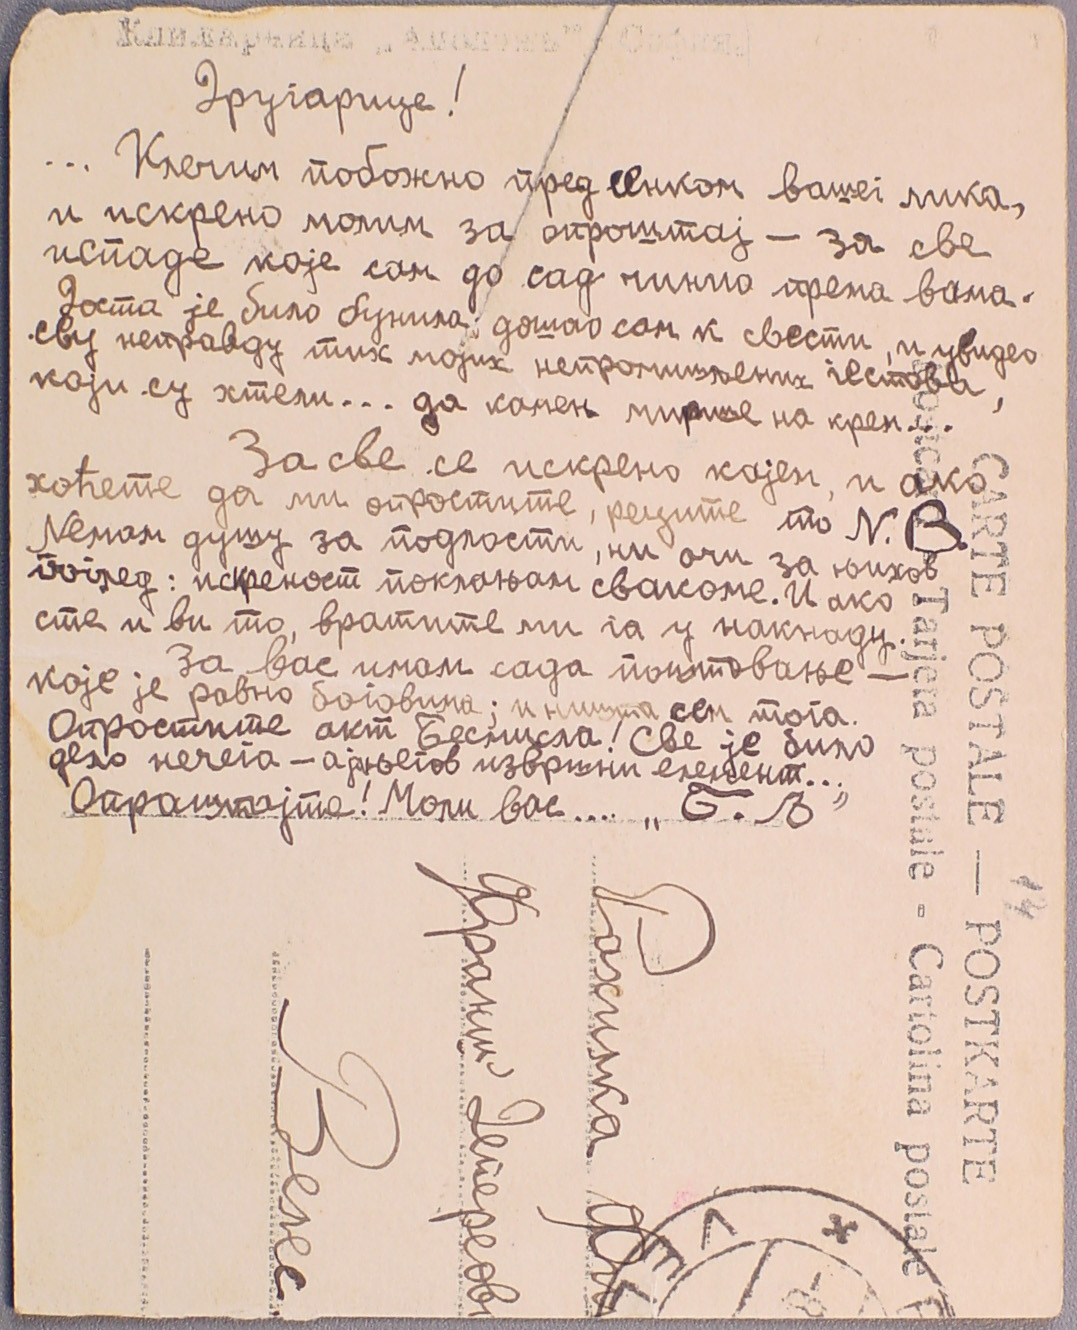 Книжарница „ „ София
Другарице!
... Клечим побожно пред сенком вашег лика,
и искрено молим за опроштај — за све
испаде које сам до сад чинио према вама.
Доста је било бунила: дошао сам к свести, и увидео
сву неправду тих мојих непромишљених гестова,
који су хтели... да камен мирише на крем....
За све се искрено кајем, и ако
хоћете да ми опростите, реците то N.B.
Nемам душу за подлости, ни очи за њихов
поглед: искреност поклањам свакоме. И ако
сте и ви то, вратите ми га у накнаду.
За вас имам сада поштовање —
које је равно боговима; и ништа сем тога.
Опростите акт бесмисла! Све је било
дело нечега — извршни елемент...
Опраштајте! Моли вас .... „Б. В”
CARTE POSTALE — POSTKARTE
Postcard - Tarjeta postale - Cartolina postale
14
Рахилка
Франш Депереов
Велес
ВЕЛЕ